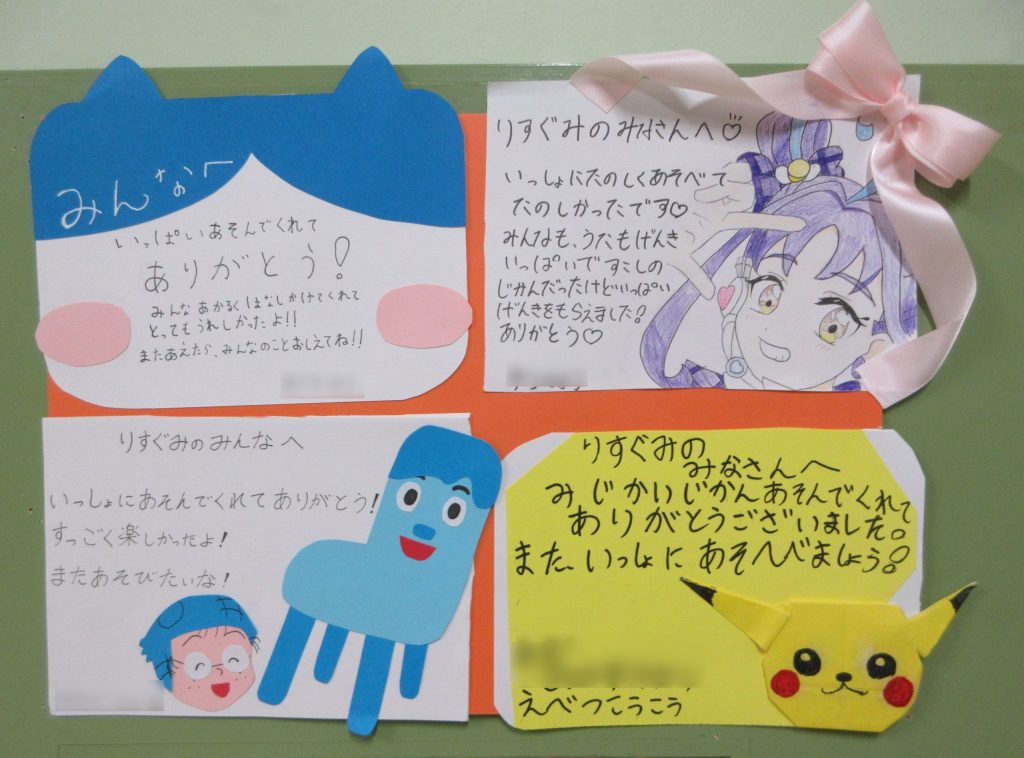 みんなへ
いっぱいあそんでくれて
ありがとう!
みんなあかるくはなしかけてくれて
とってもうれしかったよ!!
またあえたら、みんなのことおしえてね!!
りすぐみのみなさんへ♡
いっしょにたのしくあそべて
たのしかったです♡
みんなも、うたもげんき
いっぱいですこしの
じかんだったけどいっぱい
げんきをもらえました!
ありがとう♡
りすぐみのみんなへ
いっしょにあそんでくれてありがとう!
すっごく楽しかったよ!
またあそびたいな!
りすぐみの
みなさんへ
みじかいじかんあそんでくれて
ありがとうございました!
また、いっしょにあそんじましょう!
えべつこうこう